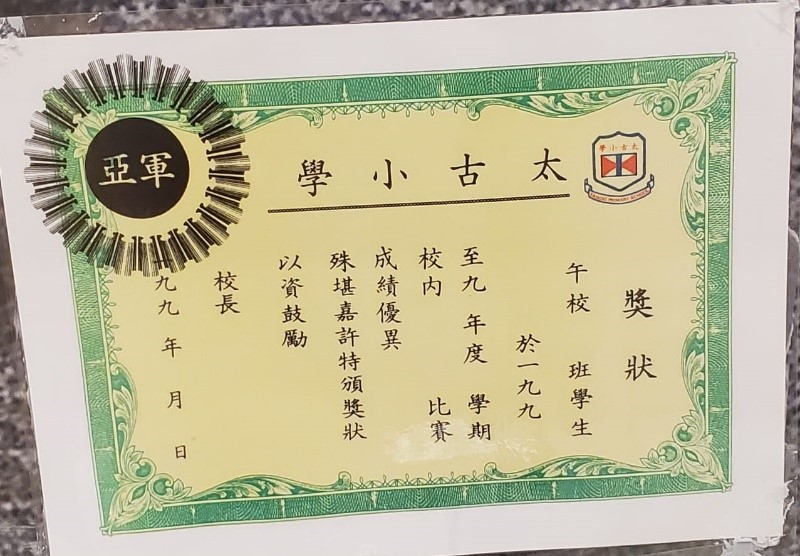 太古小學
太古小學
TAIKOO PRIMARY SCHOOL
亞軍
獎狀
午校 班學生
於一九九
至九 年度 學期
校內 比賽
成績優異
殊堪嘉許特頒獎狀
以資鼓勵
校長
九九 年 月 日